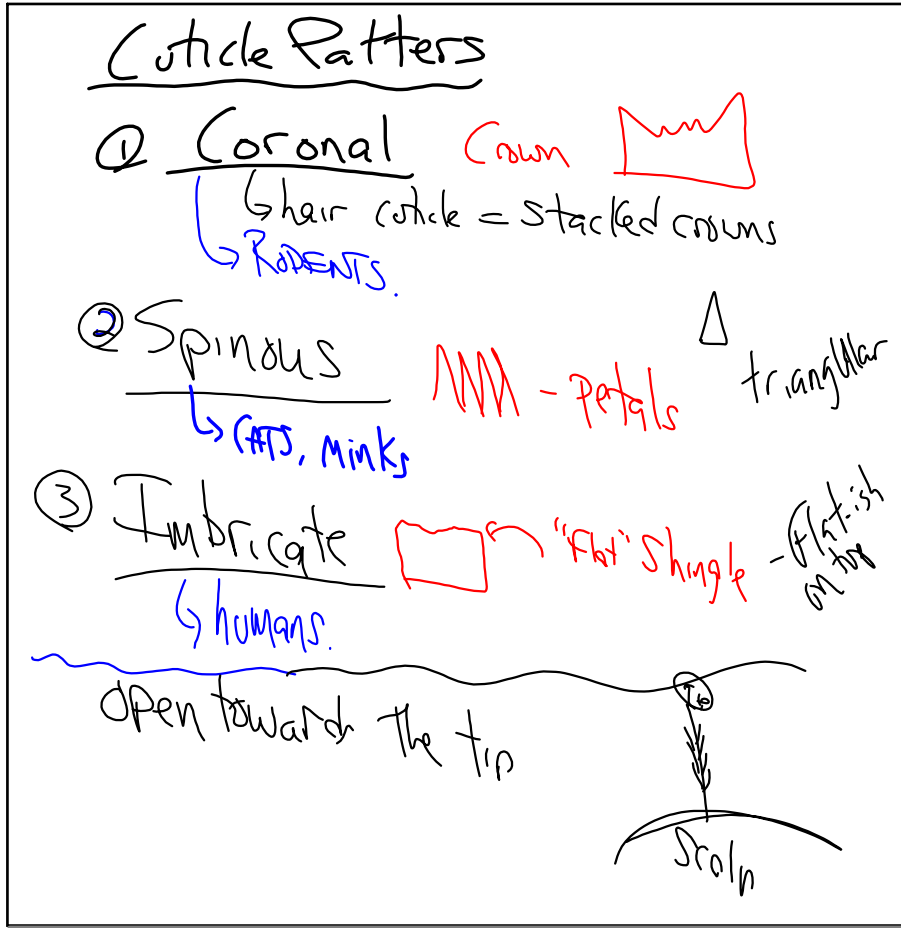 Cuticle Patters
① Coronal Crown
↳ hair cuticle = stacked crowns
↳ RODENTS.
② Spinous - Petals triangular
↳ CATS, Minks
③ Imbricate "Flat" Shingle - flat-ish on top
↳ humans.
open toward the tip
tip
Scalp